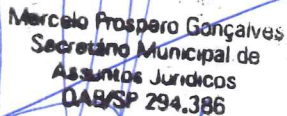 Marcelo Prospero Gonçalves
Secretário Municipal de
Assuntos Jurídicos
OAB/SP 294.386